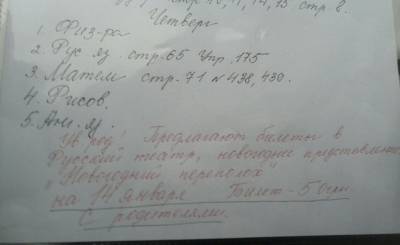 стр. 8.
Четверг
1. Физ-ра
2. Рус яз. стр. 65 Упр. 175
3. Матем стр. 71 № 438, 439.
4. Рисов.
5. Анг. яз.
Ув. род! Предлагают билеты в
Русский театр, новогоднее
"Новогодний переполох"
на 14 января Билет - 50грн
С родителями.